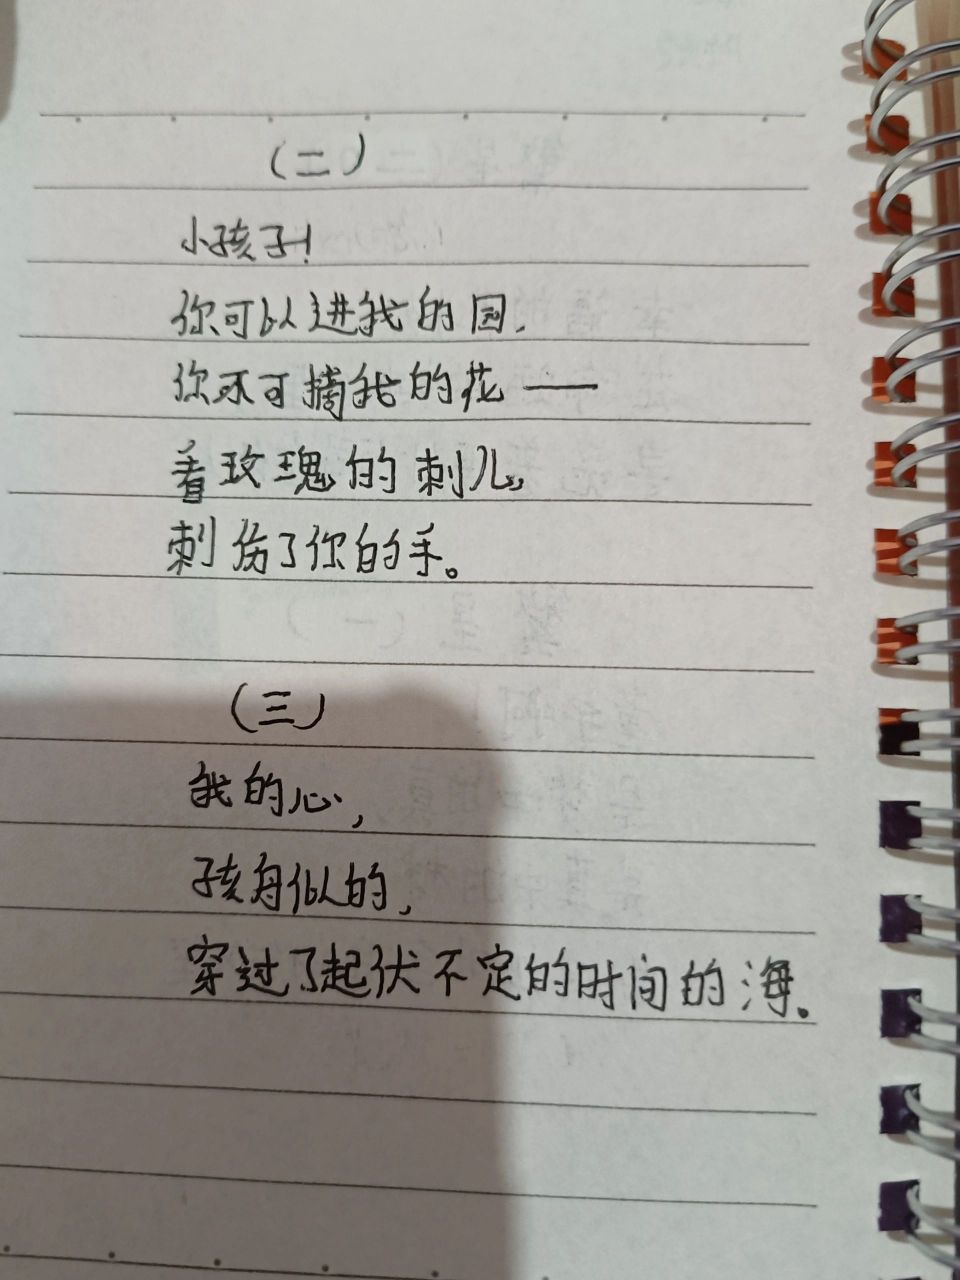 （二）
小孩子！
你可以进我的园，
你不可摘我的花——
看玫瑰的刺儿，
刺伤了你的手。
（三）
我的心，
孩舟似的，
穿过了起伏不定的时间的海。